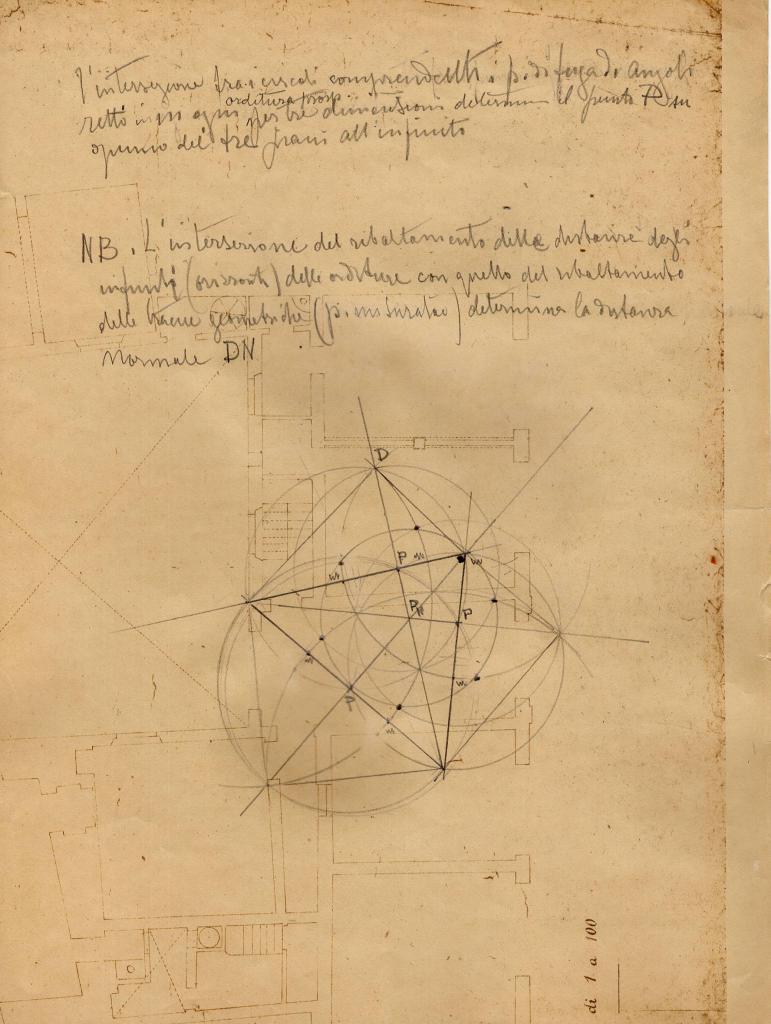 l'intersezione fra i circoli comprendenti i p. di fuga di angoli
orditura prosp.
retti in ogni per tre dimensioni determina il punto P su
ognuno dei tre piani all'infinito
NB. L'intersezione del ribaltamento delle distanze degli
infiniti (orizzonti) delle orditure con quello del ribaltamento
delle tracce geometriche (p. misuratore) determina la distanza
Normale DN
D
P
M
M
M
P
P
P
M
M
P
M
di 1 a 100